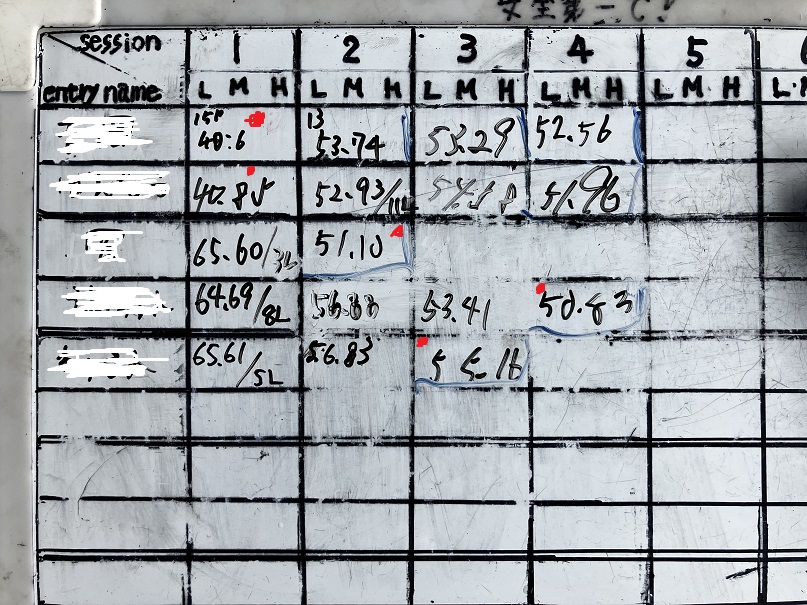 安全第一
session 1 2 3 4 5
entry name L M H L M H L M H L M H L M H L
15P 13
40:6 53.74 53.29 52.56
40.85 52.93/11L 51.96
65.60/3L 51.10
64.69/8L 56.88 53.41 50.83
65.61/5L 56.83 55.16